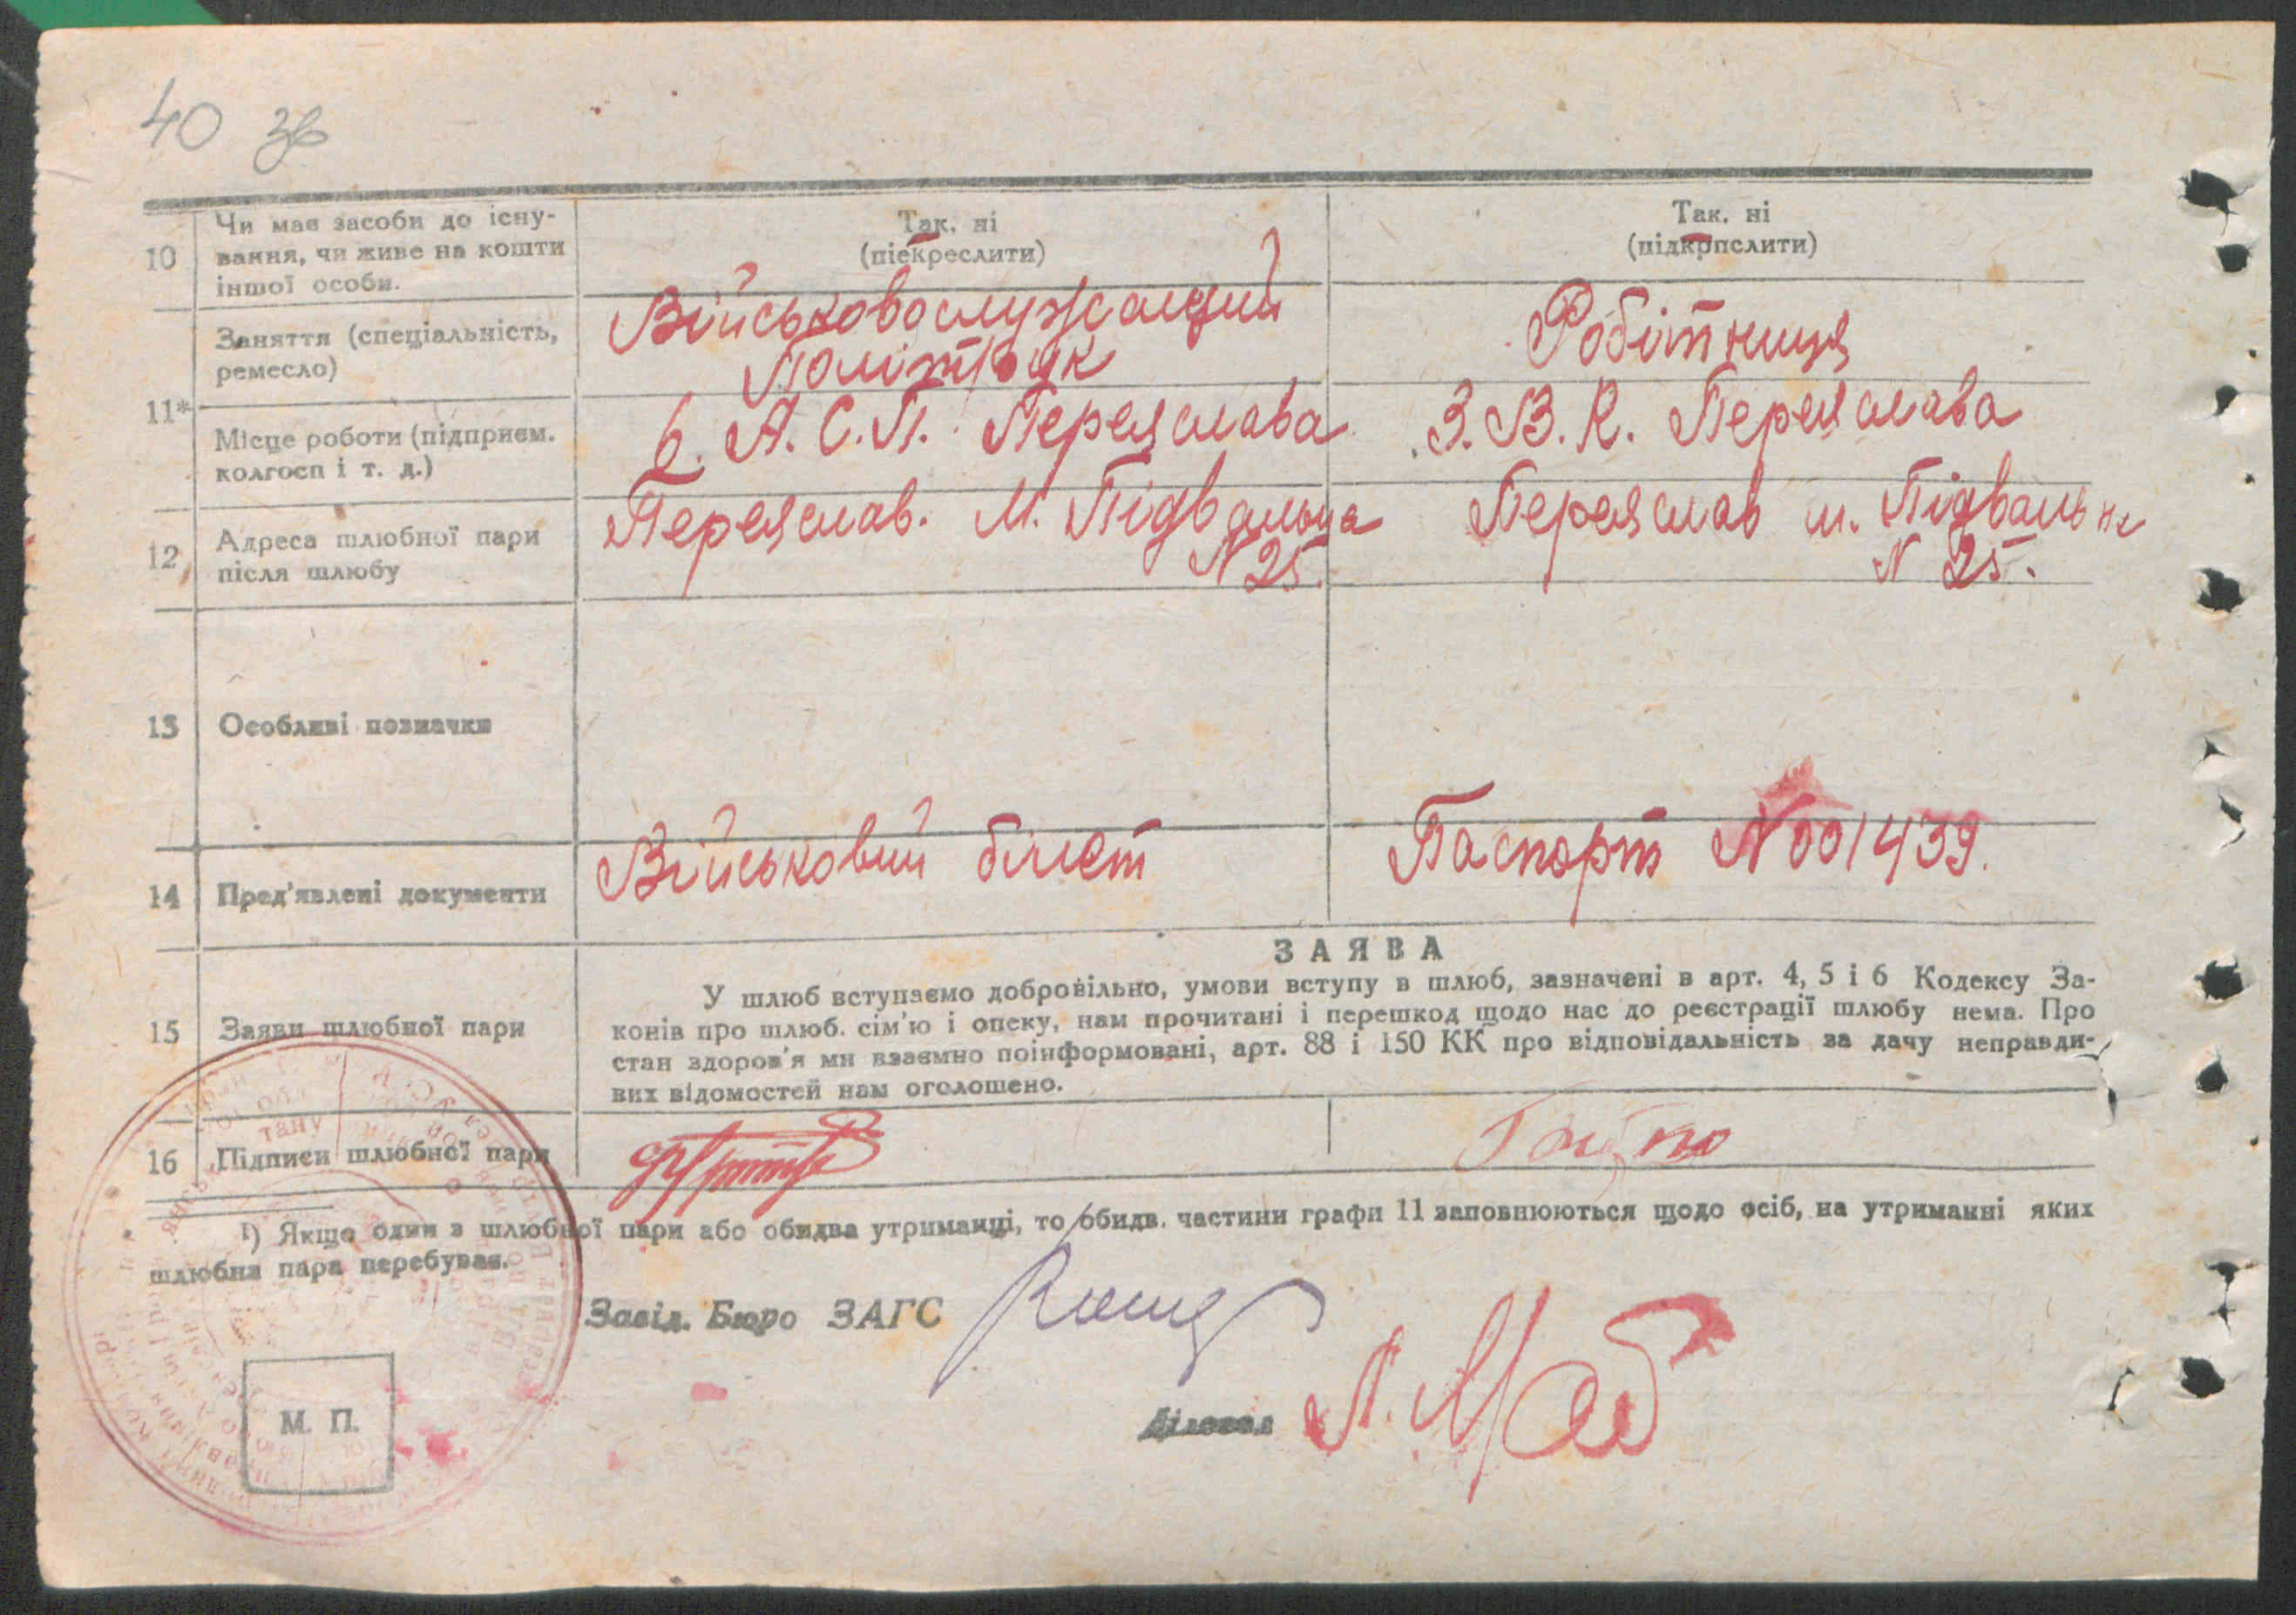 40 зв
10
Чи має засоби до існу-
вання, чи живе на кошти
іншої особи.
Так, ні
(піекреслити)
Так, ні
(підкрпслити)
11*
Заняття (спеціальність,
ремесло)
Військовослужащий
Політрук
Робітниця
Місце роботи (підприєм.
колгосп і т. д.)
6. А. С. П. Переяслава
З. В. К. Переяслава
12
Адреса шлюбної пари
після шлюбу
Переяслав. М. Підвальна
N 25.
Переяслав м. Підвальна
N 25.
13
Особливі позначки
14
Пред'явлені документи
Військовий білет
Паспорт N 001439.
15
Заяви шлюбної пари
ЗАЯВА
У шлюб вступаємо добровільно, умови вступу в шлюб, зазначені в арт. 4, 5 і 6 Кодексу За-
конів про шлюб. сім'ю і опеку, нам прочитані і перешкод щодо нас до реєстрації шлюбу нема. Про
стан здоров'я ми взаємно поінформовані, арт. 88 і 150 КК про відповідальність за дачу неправди-
вих відомостей нам оголошено.
16
Підписи шлюбної пари
¹) Якщо один з шлюбної пари або обидва утриманці, то обидв. частини графи 11 заповнюються щодо осіб, на утриманні яких
шлюбна пара перебуває.
Завід. Бюро ЗАГС
Діловод
М. П.